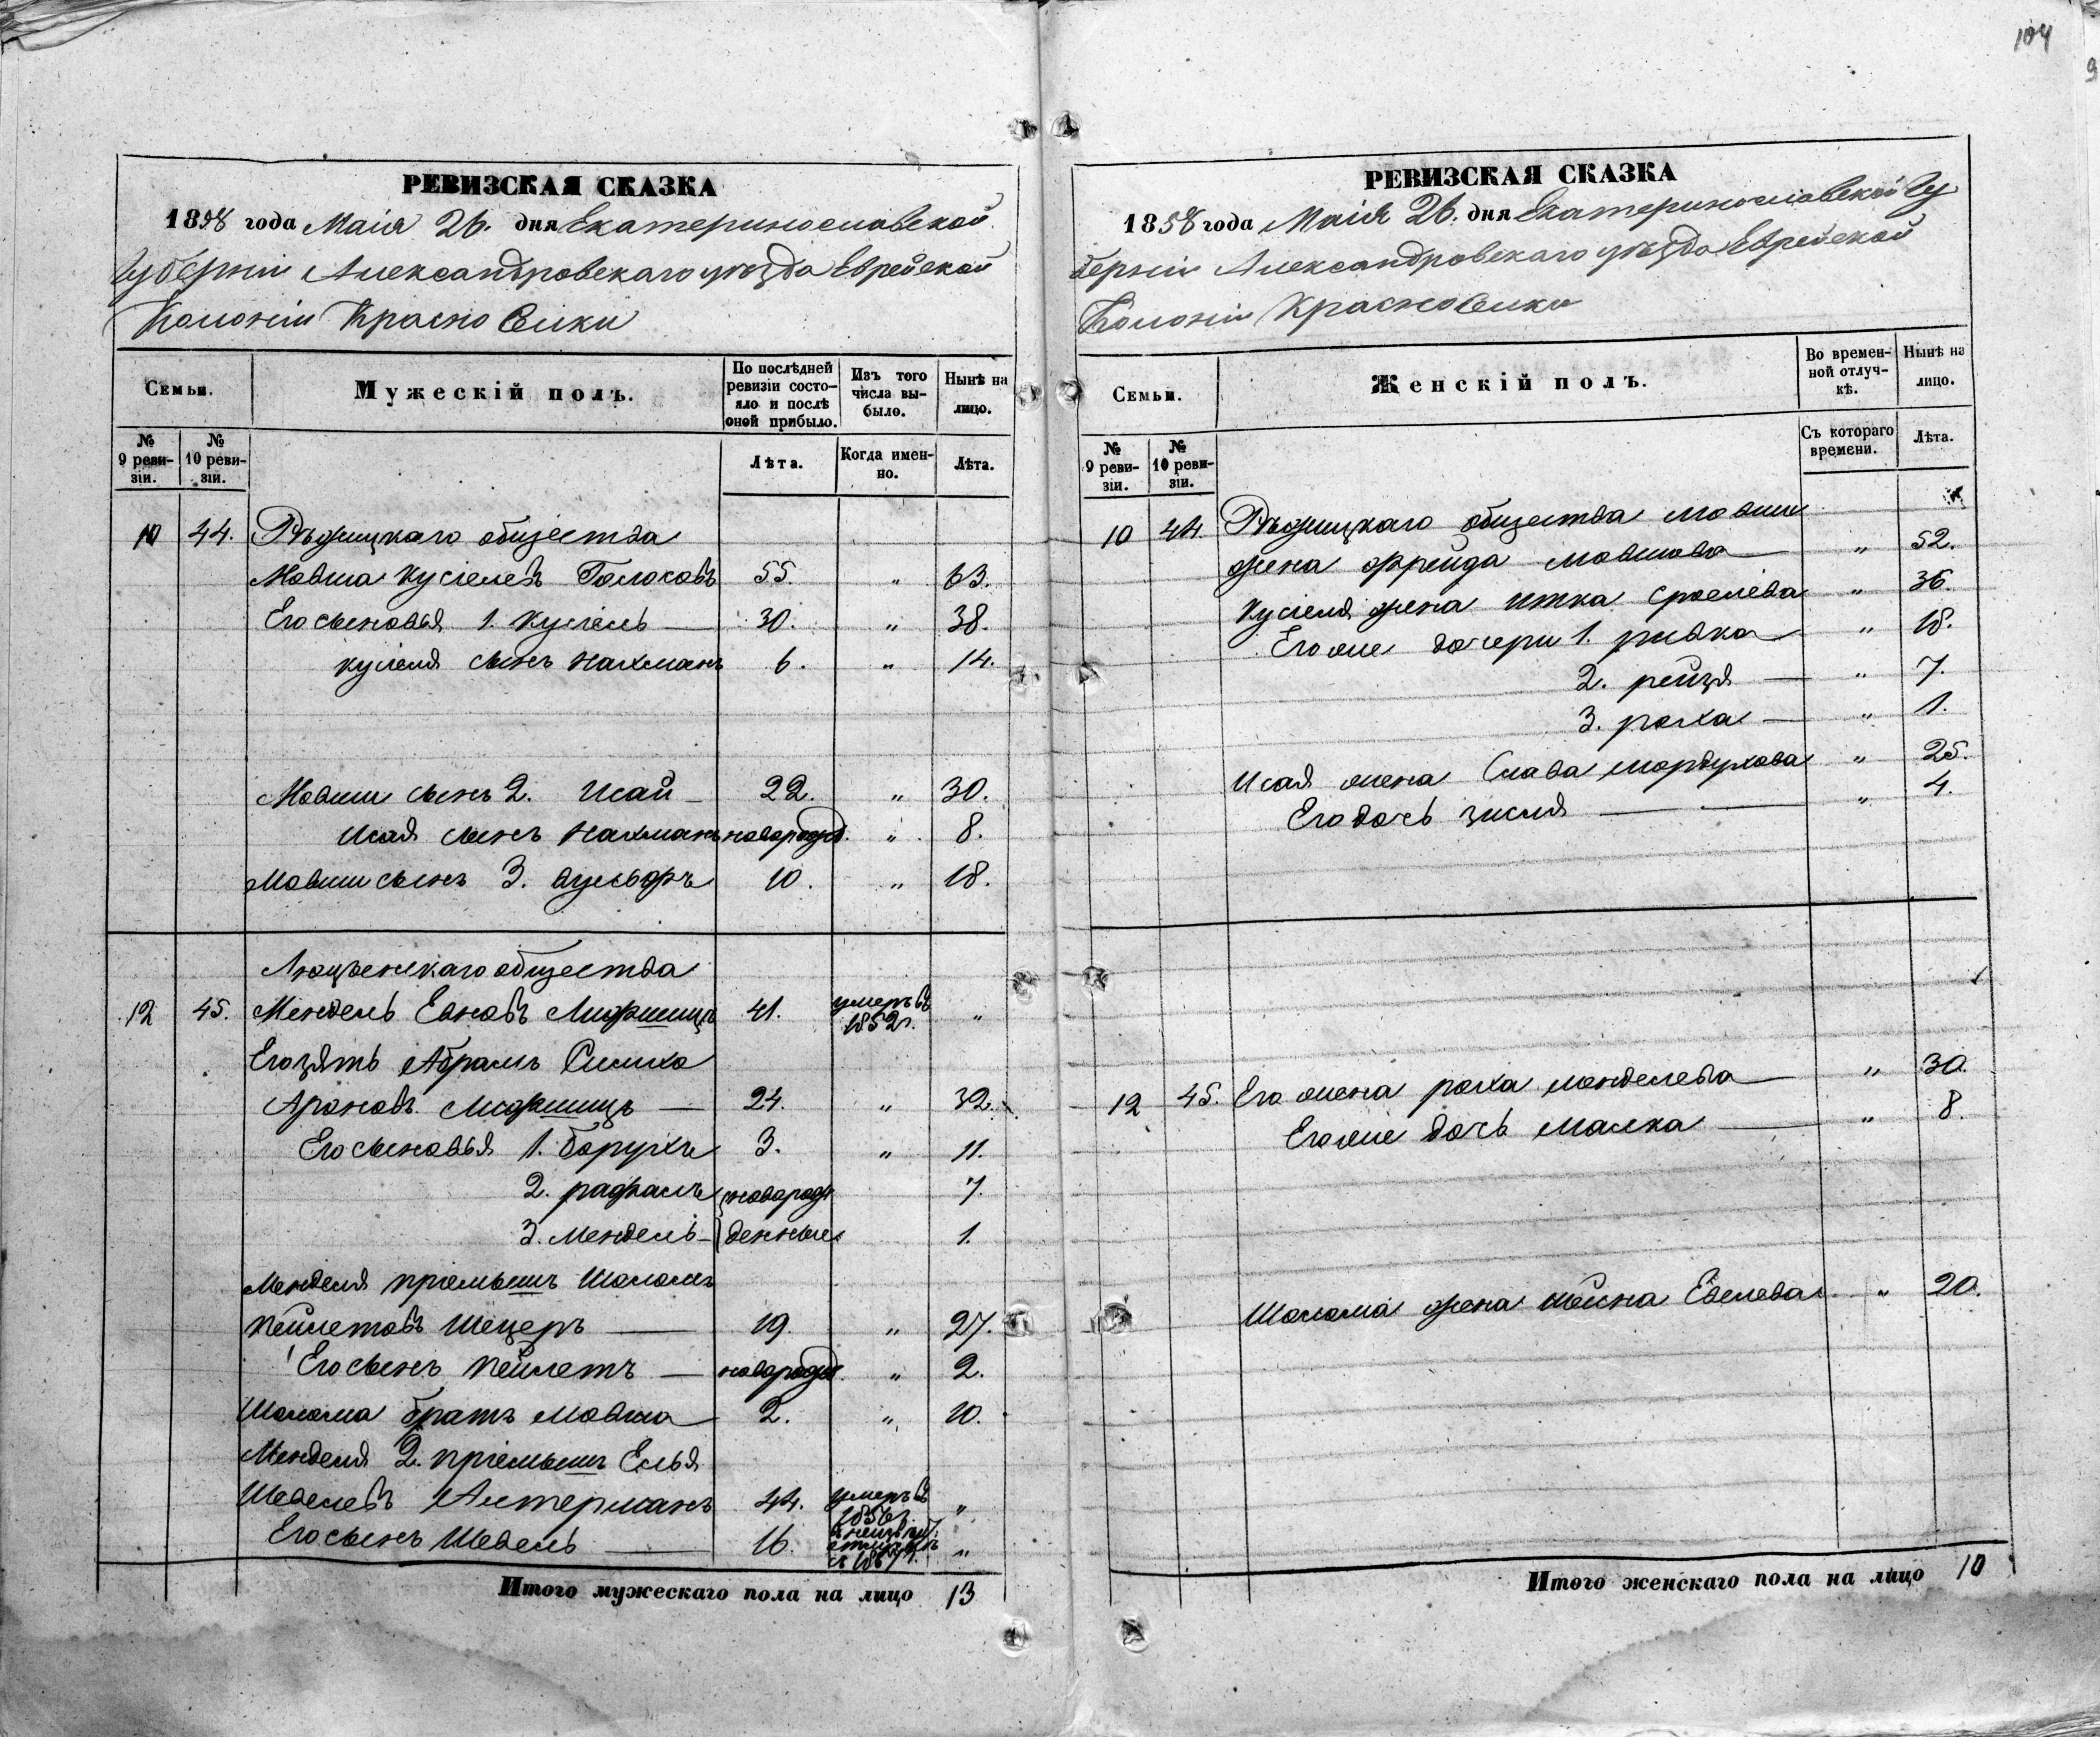 104
9
РЕВИЗСКАЯ СКАЗКА
1858 года Маія 26. дня Екатеринославской
Губерніи Александровскаго уѣзда Еврейской
Колоніи Красноселки
Семьи.
Мужескій полъ.
По послѣдней ревизіи состо-яло и послѣ оной прибыло.
Изъ того числа вы-было.
Нынѣ на лицо.
№ 9 реви-зіи.
№ 10 реви-зіи.
Лѣта.
Когда имен-но.
Лѣта.
10 44. Рѣжицкаго общества
Мовша Кусіелевъ Голосовъ 55. " 63.
Его сыновья 1. Кусіель 30. " 38.
Кусіеля сынъ Нахманъ 6. " 14.
Мовши сынъ 2. Исай 22. " 30.
Исая сынъ Нахманъ новорожд. " 8.
Мовши сынъ 3. 10. " 18.
Люцѣнскаго общества
12 45. Мендель Евновъ Лифшицъ 41. умеръ въ 1852 г. "
Его зять Абрамъ Симха
Ароновъ Лифшицъ 24. " 32.
Его сыновья 1. Борухъ 3. " 11.
2. рафаль новорож 7.
3. Мендель денные 1.
Менделя пріемышъ Шоломъ
Пейлетовъ Шецеръ 19. " 27.
Его сынъ Пейлетъ новорожд. " 2.
Шолома братъ Мовша 2. " 10.
Менделя 2. пріемышъ Елья
Шевелевъ Алтерманъ 44. умеръ въ 1856 г. "
Его сынъ Шевель 16. "
Итого мужескаго пола на лицо 13
РЕВИЗСКАЯ СКАЗКА
1858 года Маія 26. дня Екатеринославской Гу
берніи Александровскаго уѣзда Еврейской
Колоніи Красноселки
Семьи.
Женскій полъ.
Во времен-ной отлуч-кѣ.
Нынѣ на лицо.
№ 9 реви-зіи.
№ 10 реви-зіи.
Съ котораго времени.
Лѣта.
10 44. Рѣжицкаго общества Мовши
жена Фрейда Мовшова " 52.
Кусіеля жена Итка Сроелева " 36.
Его же дочери 1. ривка " 18.
2. рейзя " 7.
3. роха " 1.
Исая жена Слава Мордухова " 25.
Его дочь Зисля " 4.
12 45. Его жена роха Менделева " 30.
Его же дочь Малка " 8.
Шолома жена Шейна Евелева " 20.
Итого женскаго пола на лицо 10